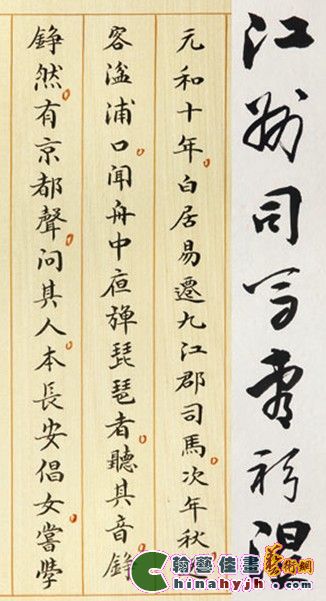 江州司马青衫湿
元和十年白居易遷九江郡司馬次年秋
客湓浦口聞舟中夜彈琵琶者聽其音錚
錚然有京都聲問其人本長安倡女嘗學
翰藝佳畫 藝術網
Chinahyjh.com